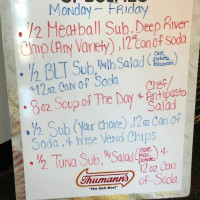 SPECIALS
Monday - Friday
• ½ Meatball Sub, Deep River
Chip (Any Variety), 12oz can of Soda
• ½ BLT Sub, ¼lb Salad (
+ 12oz Can of Soda
• 8oz Soup of The Day & Chef/
Antipasto
Salad
• ½ Sub (Your choice), 12oz Can of
Soda, & Wise Vend Chips
• ½ Tuna Sub, ¼ Salad (
12oz Can
of Soda
Thumann's
"The Deli Best"